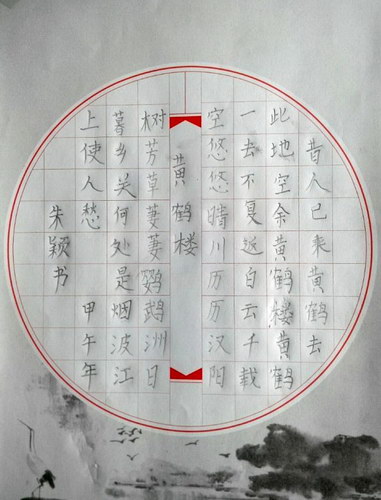 昔人已乘黄鹤去
此地空余黄鹤楼黄鹤
一去不复返白云千载
空悠悠晴川历历汉阳
黄鹤楼
树芳草萋萋鹦鹉洲日
暮乡关何处是烟波江
上使人愁 甲午年
朱颖书